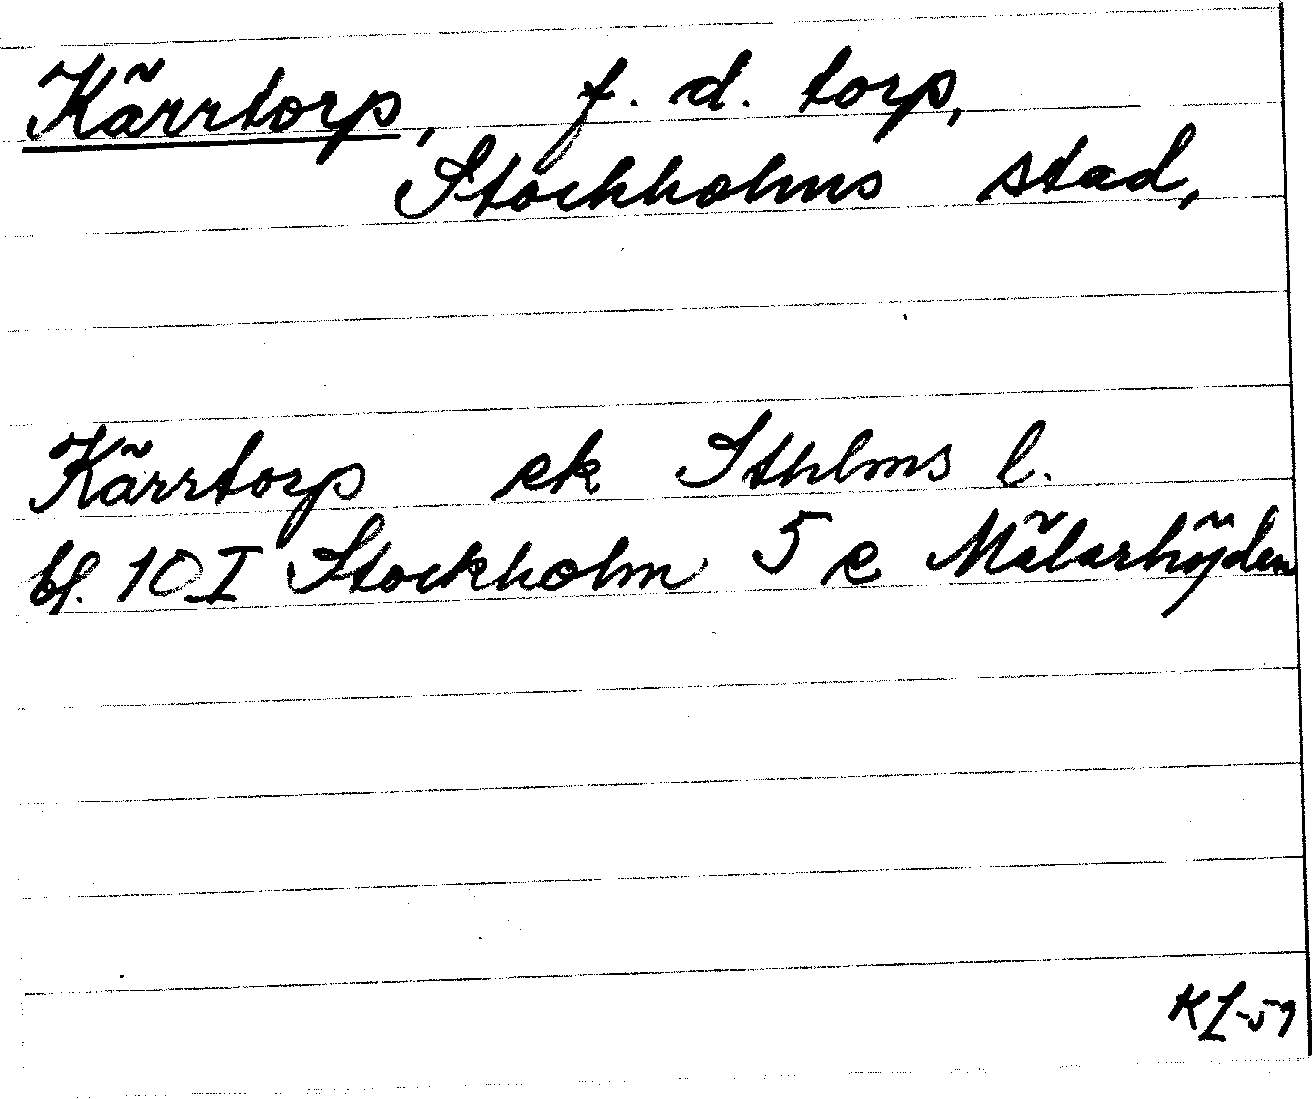 Kärrtorp, f. d. torp,
Stockholms stad,
Kärrtorp ek Sthlms l.
bl. 10 I Stockholm 5 e Mälarhöjden